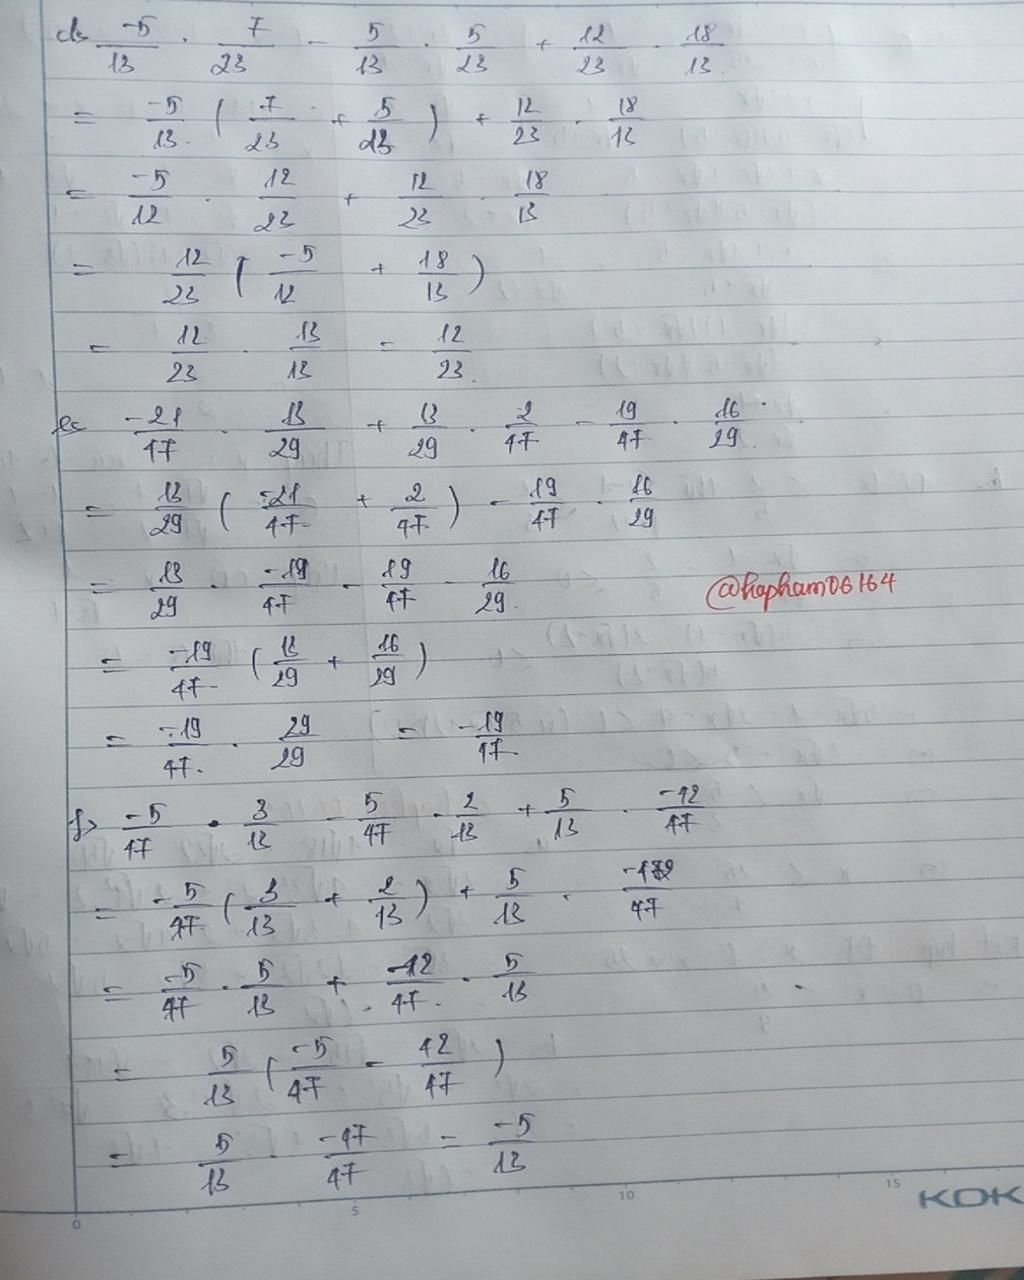 d> -5/13 . 7/23 - 5/13 . 5/23 + 12/23 . 18/13
= -5/13 . ( 7/23 + 5/23 ) + 12/23 . 18/13
= -5/12 . 12/23 + 12/23 . 18/13
= 12/23 ( -5/12 + 18/13 )
= 12/23 . 13/13 = 12/23
e> -21/47 . 13/29 + 13/29 . 2/47 - 19/47 . 16/29
= 13/29 ( -21/47 + 2/47 ) - 19/47 . 16/29
= 13/29 . -19/47 - 19/47 . 16/29
@hapham06164
= -19/47 ( 13/29 + 16/29 )
= -19/47 . 29/29 = -19/47
f> -5/47 . 3/13 - 5/47 . 2/13 + 5/13 . -42/47
= -5/47 ( 3/13 + 2/13 ) + 5/13 . -42/47
= -5/47 . 5/13 + -42/47 . 5/13
= 5/13 ( -5/47 - 42/47 )
= 5/13 . -47/47 = -5/13
0 5 10 15
KOK